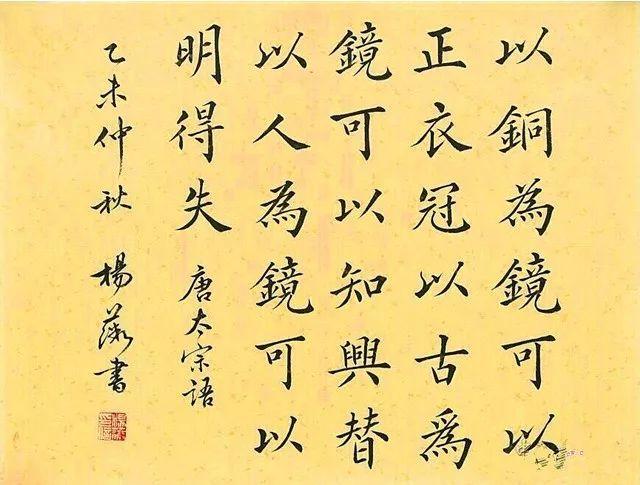 以銅為鏡可以
正衣冠以古為
鏡可以知興替
以人為鏡可以
明得失
唐太宗語
乙未仲秋 楊薇書